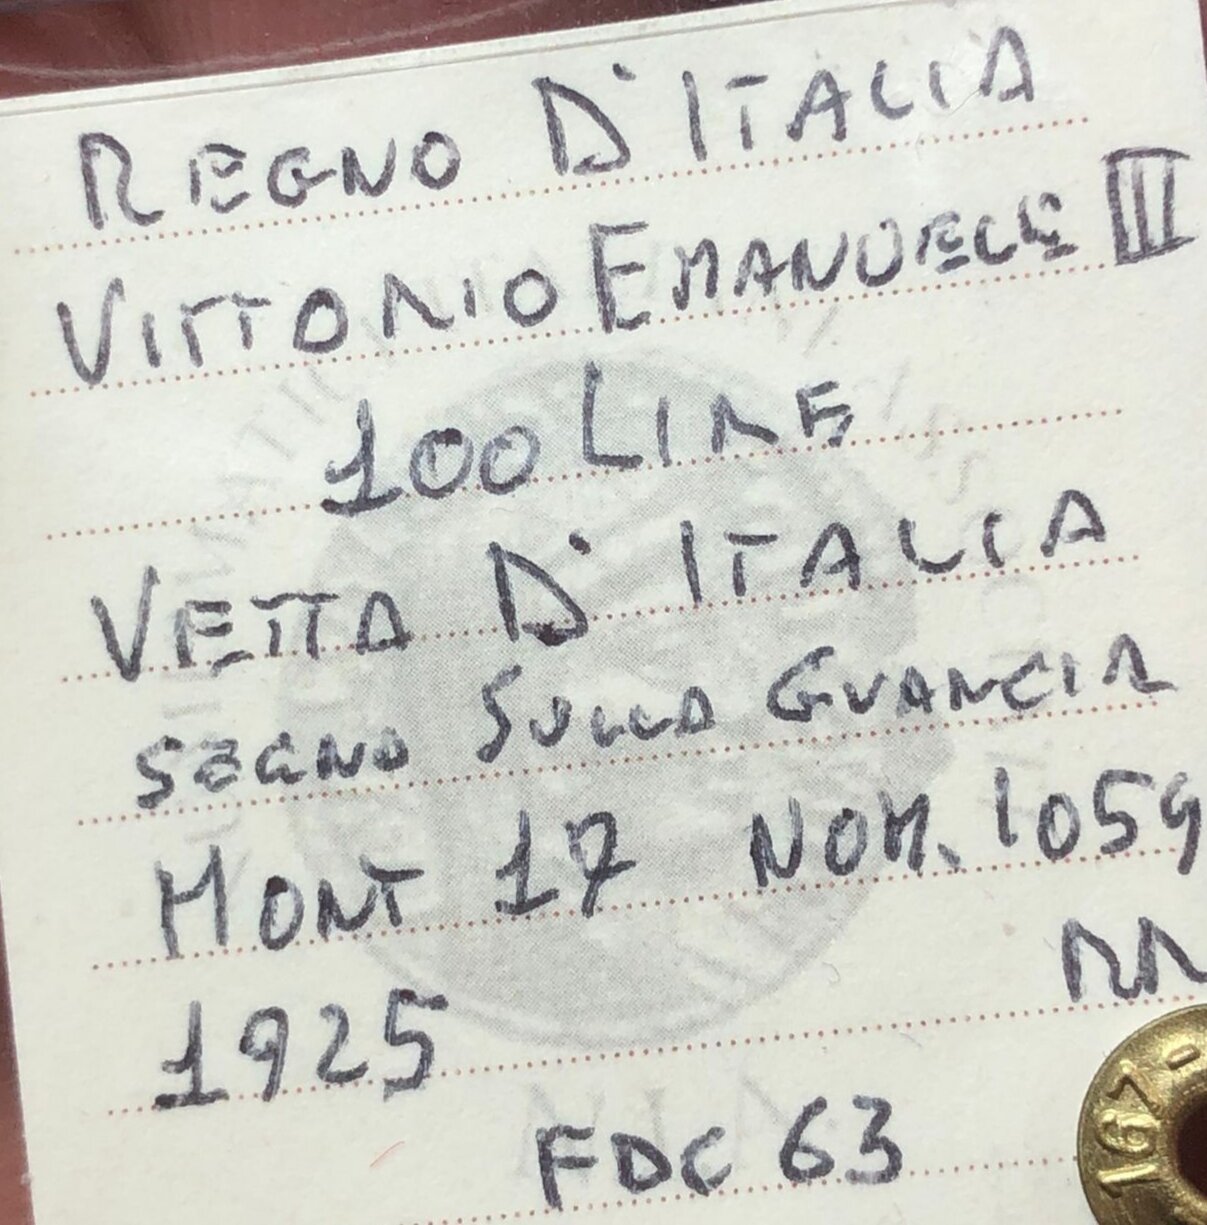 REGNO D'ITALIA
VITTORIO EMANUELE III
100 LIRE
VETTA D'ITALIA
SEGNO SULLA GUANCIA
MONT 17 NOM. 1059
RR
1925
FDC 63
167-